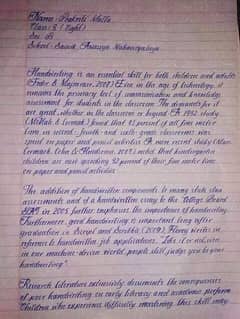 Name - Prakriti Malla
Class - 8 (Eight)
Sec - 'B'
School - Sainik Awasiya Mahavidyalaya
Handwriting is an essential skill for both children and adults
(Feder & Majnemer, 2007). Even in the age of technology, it
remains the primary tool of communication and knowledge
assessment for students in the classroom. The demands for it
are great, whether in the classroom or beyond. A 1992 study
(McHale & Cermak) found that 85 percent of all fine motor
time in second-, fourth- and sixth- grade classrooms was
spent on paper and pencil activities. A more recent study (Marr,
Cermak, Cohn & Henderson, 2003) noted that kindergarten
children are now spending 42 percent of their fine motor time
on paper and pencil activities.
The addition of handwritten components to many state
assessments and of a handwritten essay to the College Board
SAT in 2005 further emphasize the importance of handwriting.
Furthermore, good handwriting is important long after
graduation. In Script and Scribble (2009), Florey writes in
reference to handwritten job applications, "Like it or not, even
in our machine-driven world, people still judge you by your
handwriting."
Research literature extensively documents the consequences
of poor handwriting on early literacy and academic perform
Children who experience difficulty mastering this skill may